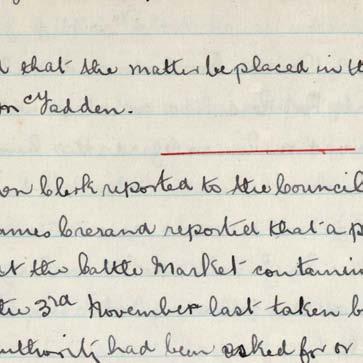 d that the matter be placed in th
McFadden.
on Clerk reported to the Council
ames Crerand reported that a p
at the Cattle Market contamin
the 3rd November last taken b
authority had been asked for or